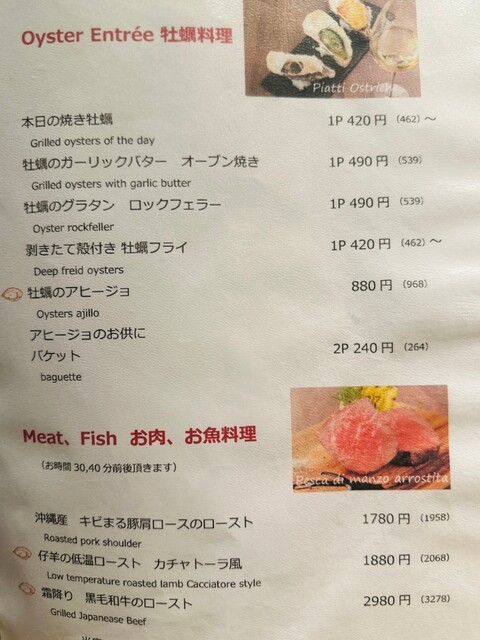 Oyster Entrée 牡蠣料理
Piatti Ostriche
本日の焼き牡蠣 1P 420円 (462) ～
Grilled oysters of the day
牡蠣のガーリックバター オーブン焼き 1P 490円 (539)
Grilled oysters with garlic butter
牡蠣のグラタン ロックフェラー 1P 490円 (539)
Oyster rockfeller
剥きたて殻付き 牡蠣フライ 1P 420円 (462) ～
Deep freid oysters
牡蠣のアヒージョ 880円 (968)
Oysters ajillo
アヒージョのお供に
バケット 2P 240円 (264)
baguette
Meat、Fish お肉、お魚料理
(お時間 30,40 分前後頂きます)
Pesca di manzo arrostita
沖縄産 キビまる豚肩ロースのロースト 1780円 (1958)
Roasted pork shoulder
仔羊の低温ロースト カチャトーラ風 1880円 (2068)
Low temperature roasted lamb Cacciatore style
霜降り 黒毛和牛のロースト 2980円 (3278)
Grilled Japanease Beef